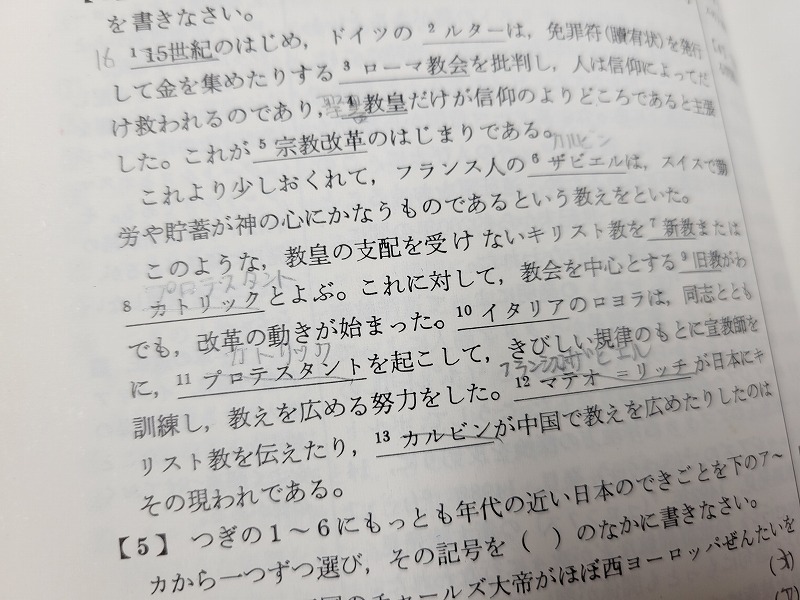 を書きなさい。
16 ¹15世紀のはじめ，ドイツの ²ルターは，免罪符(贖宥状)を発行
して金を集めたりする ³ローマ教会を批判し，人は信仰によってだ
け救われるのであり，聖書 ⁴教皇だけが信仰のよりどころであると主張
した。これが ⁵宗教改革のはじまりである。
カルビン
これより少しおくれて，フランス人の ⁶ザビエルは，スイスで勤
労や貯蓄が神の心にかなうものであるという教えをといた。
このような，教皇の支配を受けないキリスト教を ⁷新教または
プロテスタント
⁸カトリックとよぶ。これに対して，教会を中心とする ⁹旧教がわ
でも，改革の動きが始まった。¹⁰イタリアのロヨラは，同志ととも
カトリック
に，¹¹プロテスタントを起こして，きびしい規律のもとに宣教師を
フランシスコ=ザビエル
訓練し，教えを広める努力をした。¹²マテオ＝リッチが日本にキ
リスト教を伝えたり，¹³カルビンが中国で教えを広めたりしたのは
その現われである。
【5】 つぎの1～6にもっとも年代の近い日本のできごとを下のア～
カから一つずつ選び，その記号を（ ）のなかに書きなさい。
チャールズ大帝がほぼ西ヨーロッパぜんたいを
(オ)